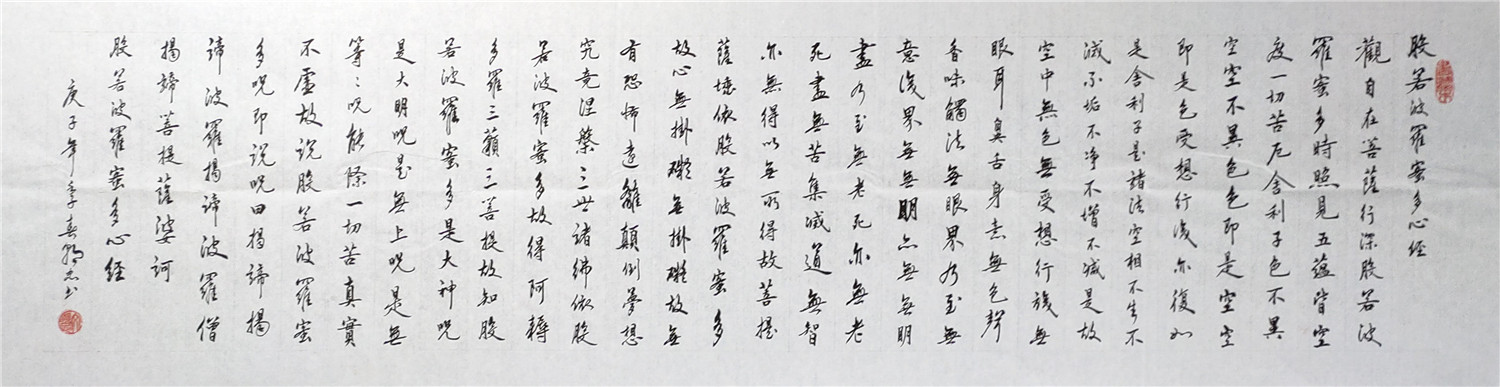 般若波羅蜜多心经
觀自在菩薩行深般若波
羅蜜多時照見五蘊皆空
度一切苦厄舍利子色不異
空空不異色色即是空空
即是色受想行识亦復如
是舍利子是諸法空相不生不
滅不垢不净不增不减是故
空中無色無受想行識無
眼耳鼻舌身意無色聲
香味觸法無眼界乃至無
意识界無無明亦無無明
盡乃至無老死亦無老
死盡無苦集滅道無智
亦無得以無所得故菩提
薩埵依般若波羅蜜多
故心無掛礙無掛礙故無
有恐怖遠離顛倒夢想
究竟涅槃三世諸佛依般
若波羅蜜多故得阿耨
多羅三藐三菩提故知般
若波羅蜜多是大神呪
是大明呪是無上呪是無
等〻呪能除一切苦真實
不虛故說般若波羅蜜
多呪即說呪曰揭諦揭
諦波羅揭諦波羅僧
揭諦菩提薩婆訶
般若波羅蜜多心经
庚子年李春书